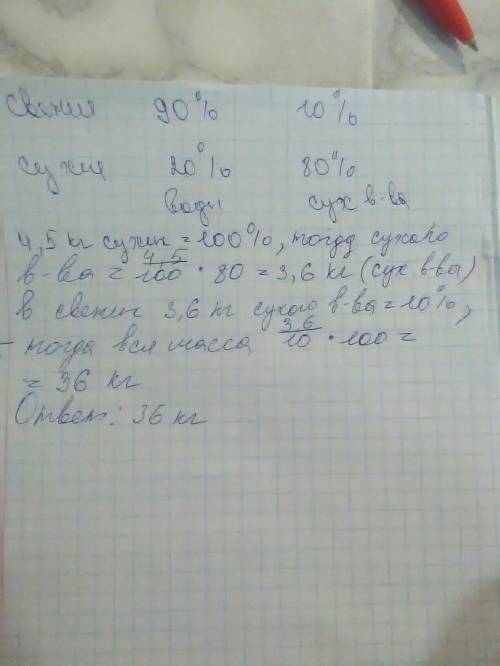 свежий 90% 10%
сухие 20% 80%
воды сух в-ва
4,5 кг сухих = 100%, тогда сухого
в-ва = 4,5/100 · 80 = 3,6 кг (сух. в-ва)
в свежих 3,6 кг сухого в-ва = 10%,
тогда вся масса 3,6/10 · 100 =
= 36 кг
Ответ: 36 кг